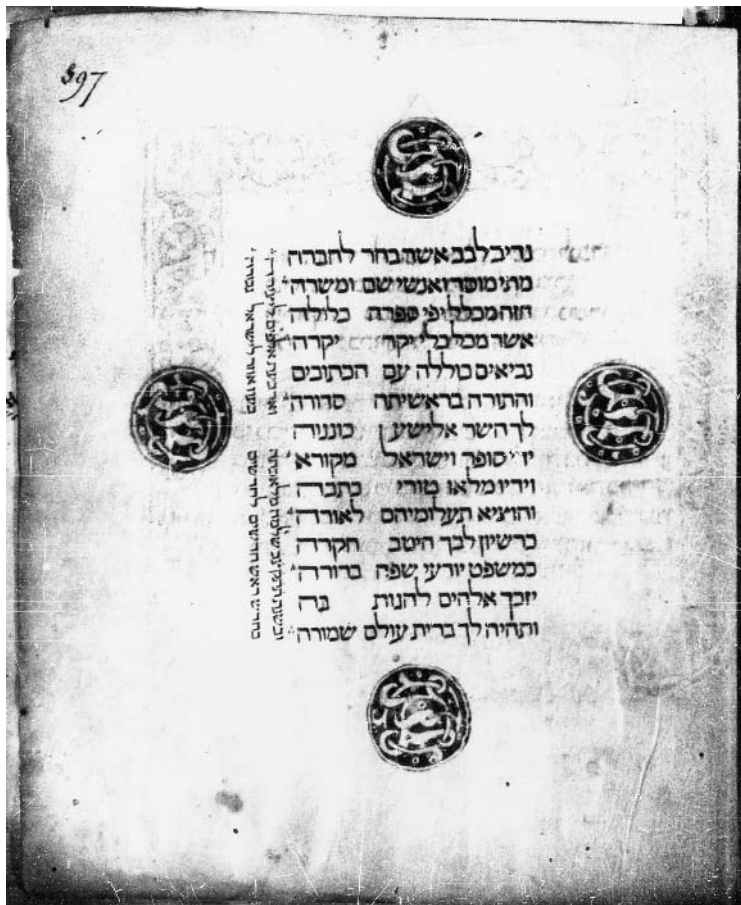 397
נדיב לבב אשר בחר לחברה
מתי מוסר ואנשי שם ומשרה
חזה מכלל יפי ספרת כלולה
אשר מכל כלי יקר יקרה
נביאים כוללה עם הכתובים
והתורה בראשיתה סדורה
לך השר אלישע כוננוה
ידי סופר וישראל מקורא
וידיו מלאו טורי כתבה
והוציא תעלומיהם לאורה
כרשיון לבך היטב חקרה
כמשפט יודעי שפה ברורה
יזכך אלהים להגות בה
ותהיה לך ברית עולם שמורה
ובשנת שלמה מלאכתה
בחדש ראש חדשים לחדשים